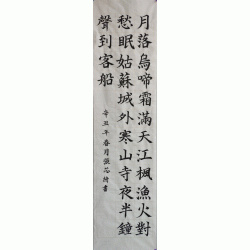 月落烏啼霜滿天江楓漁火對
愁眠姑蘇城外寒山寺夜半鐘
聲到客船
辛丑年春月張芯書